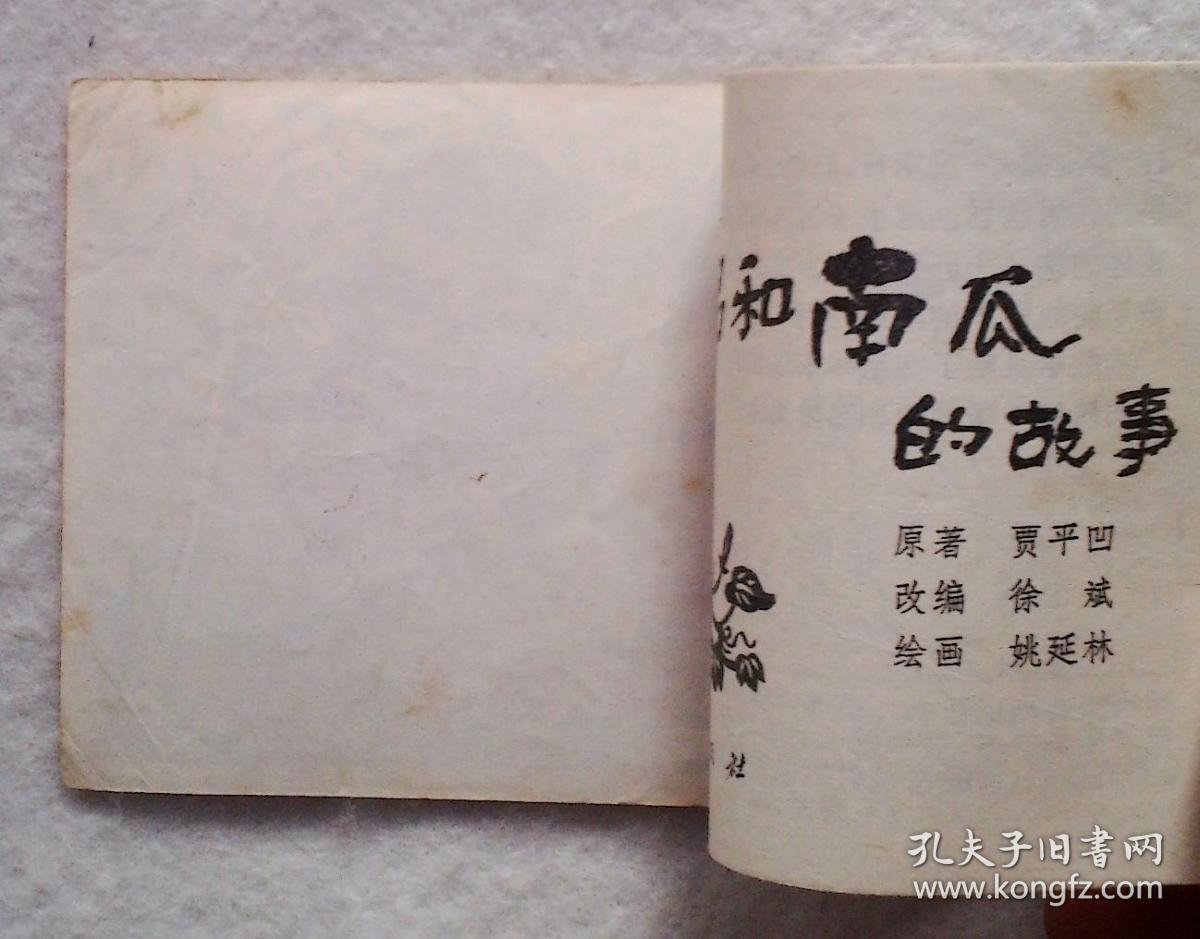 和南瓜
的故事
原著 贾平凹
改编 徐 斌
绘画 姚延林
社
孔夫子旧书网
www.kongfz.com